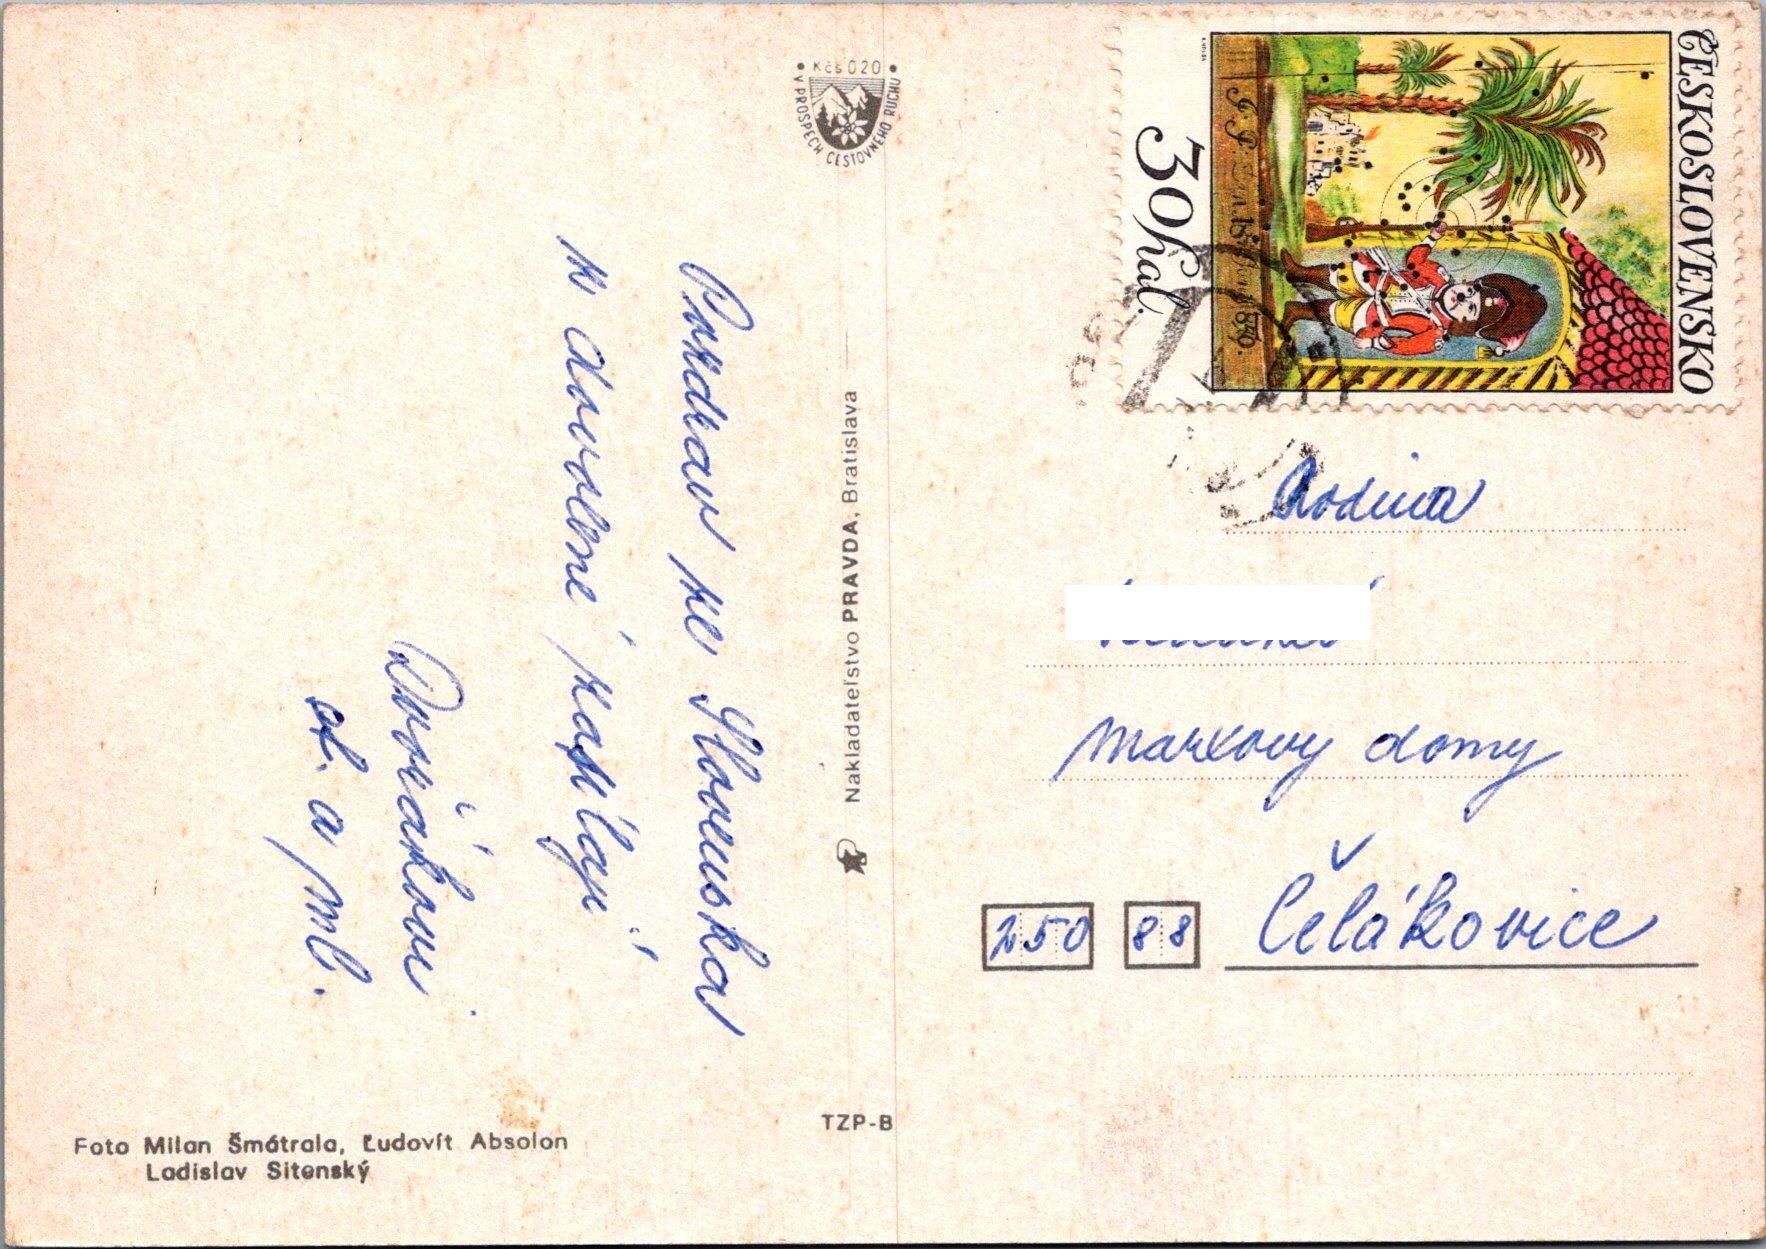 Pozdrav ze Slovenska
z dovolené zasílají
Dvořákovi
st. a ml.
Foto Milan Šmátrala, Ľudovít Absolon
Ladislav Sitenský
• Kčs 0 20 •
V PROSPECH CESTOVNÉHO RUCHU
Nakladateľstvo PRAVDA, Bratislava
TZP-B
ČESKOSLOVENSKO
30 hal.
Rodina
Marxovy domy
250 88 Čelákovice